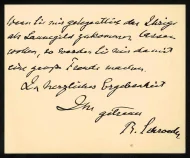 wenn Sie mir gelegentlich das übrige
als Leihgabe zukommen lassen
wollen, so werden Sie mir damit
eine große Freude machen.
In herzlicher Ergebenheit
Ihr
getreuer
R. Schroeder